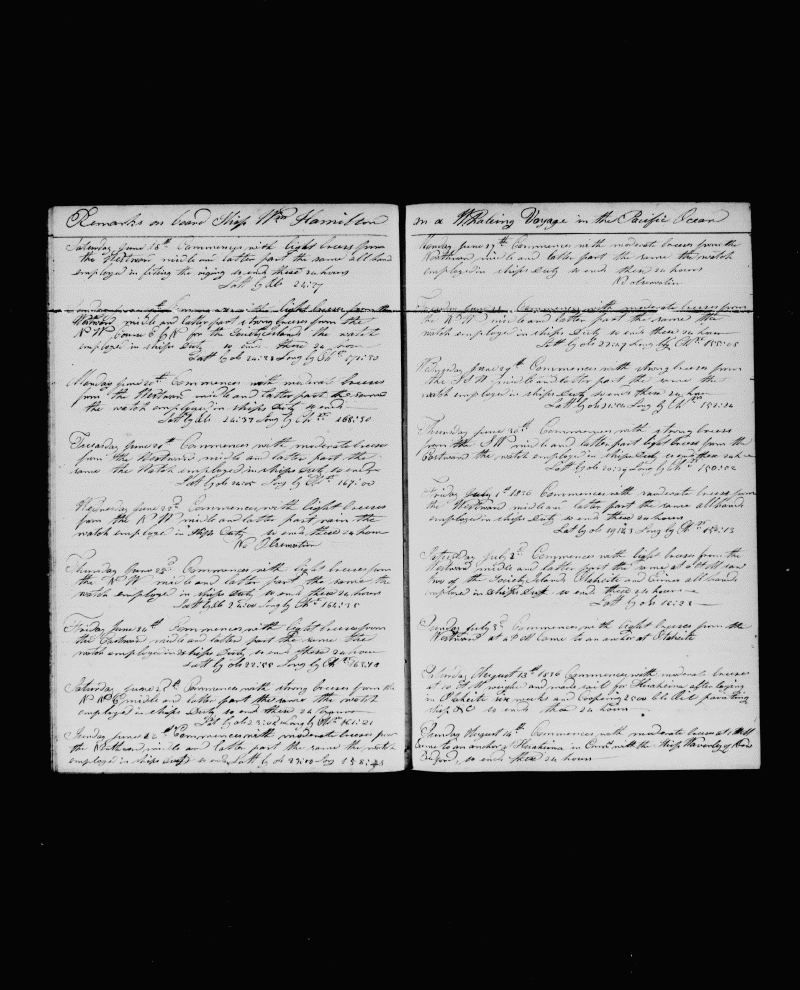 Remarks on board Ship Wm Hamilton
Saturday June 18th Commences with light breses from
the Westward midle and latter part the same all hand
employed in fiting the riging so ends these 24 hours
Latt by Ob 24:27
Commences with light breses from the
Westward midle and latter part strong breses from the
for the Society Islands the watch
employed in ships Duty so ends these 24 hour
Latt by ob 24:28 Long by Ch
Monday June 20th Commences with moderate breses
from the Westward midle and latter part the same
the watch employed in ships Duty so ends
Latt by Ob 24:37 Long by Ch 168:30
Tuesday June 21th Commences with moderate breses
from the Westward midle and latter part the
same the Watch employed in ships Duty so ends
Latt by ob Long by Ch 167:00
Wednesday June 22d Commences with light breses
from the N W midle and latter part from the
watch employed in Ships Duty so ends these 24 hour
No Observation
Thursday June 23d Commences with light breses from
the N W midle and latter part the same the
watch employed in ships duty so ends these 24 hours
Latt by Ob 24:00 Long by Ch
Friday June 24th Commences with light breses from
the midle and latter part the same the
watch employed in ships Duty so ends these 24 hour
Latt by ob Long by Ch
Saturday June 25th Commences with strong breses from the
midle and latter part the same the watch
employed in ships Duty so ends these 24 hours
Latt by ob Long by Ch 161:21
Sunday June 26th Commences with moderate breses from
the Northward midle and latter part the same the watch
employed in ships duty so ends Latt by ob Long 158:43
on a Whaleing Voyage in the Pacific Ocean
Monday June 27th Commences with moderate breses from the
Northward midle and latter part the same the watch
employed in ships Duty so ends these 24 hours
No observation
Commences with moderate breses from
the N W midle and latter part the same the
watch employed in ships Duty so ends these 24 hour
Latt by ob Long by Ch 155:05
June 29th Commences with strong breses from
the S S W midle and latter part the same the
watch employed in ships Duty so ends these 24 hour
Latt by ob Long by Ch 152:24
Thursday June 30th Commences with strong breses
from the S W midle and latter part light breses from the
Eastward the watch employed in ships Duty so ends these 24 h
Latt by ob Long by Ch 150:02
Friday July 1st 1836 Commences with moderate breses from
the Westward midle and latter part the same all hands
employed in ships Duty so ends these 24 hours
Latt by ob Long by Ch
Saturday July 2d Commences with light breses from the
Westward midle and latter part the same at 5 P M saw
two of the Society Islands Otaheite and Eimeo all hands
employed in Ships Duty so ends these 24 hours
Latt by ob
Sunday July 3d Commences with light breses from the
Westward at 2 P M Came to an anchor at Otaheite
Saturday August 13th 1836 Commences with moderate breses
at 10 A M weighed and made sail for Huaheina after laying
in Otaheite six weeks and Coopering 2500 bbls Oil painting
Ship &C so ends these 24 hours
Sunday August 14th Commences with moderate breses at
came to an anchor at Huaheina in Comp with the Ship Waverly of New
Bedford, so ends these 24 hours